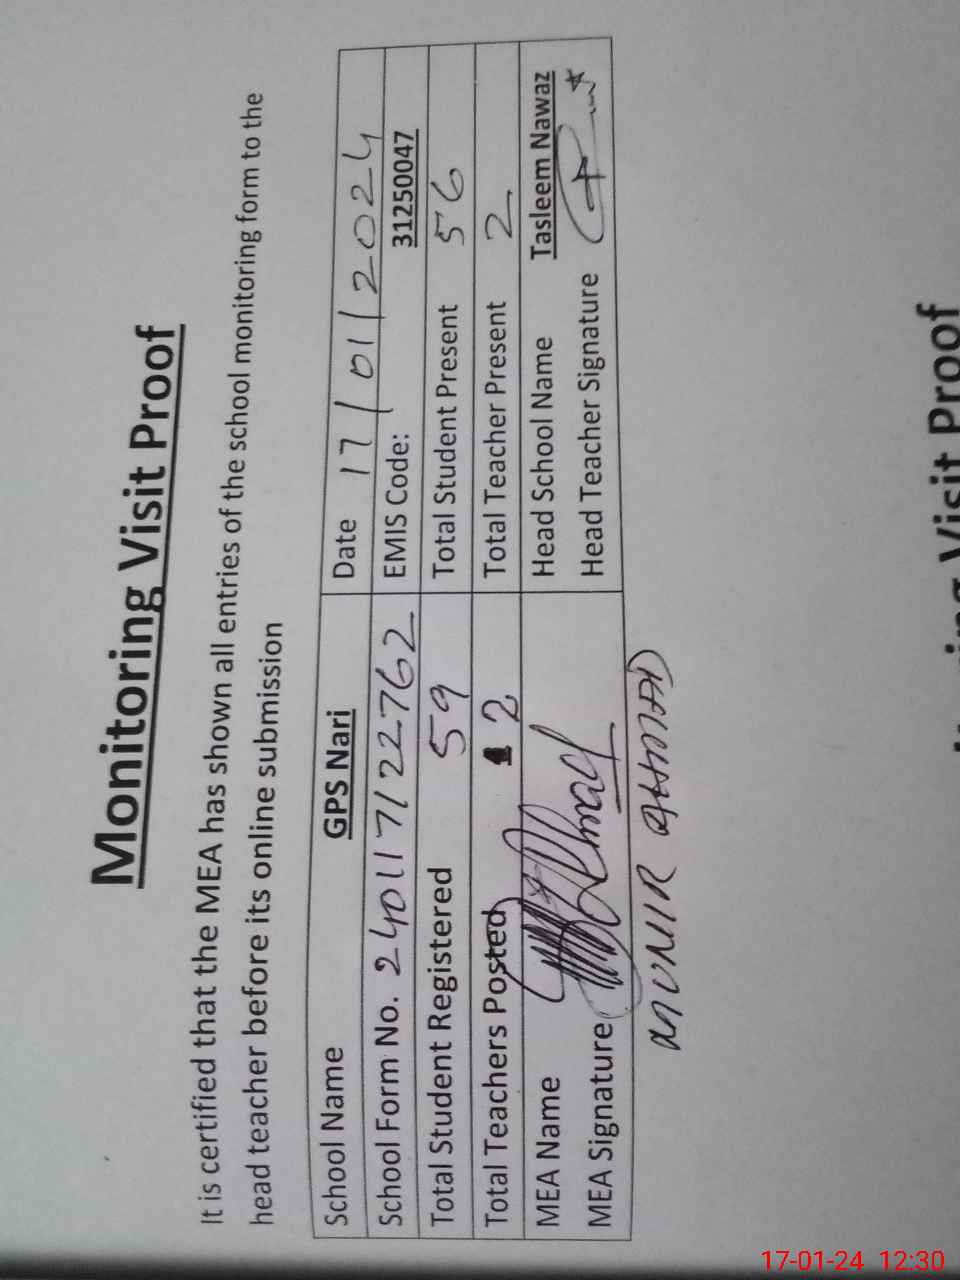 Monitoring Visit Proof
It is certified that the MEA has shown all entries of the school monitoring form to the
head teacher before its online submission
School Name GPS Nari Date 17/01/2024
School Form No. 24011712 2762 EMIS Code: 31250047
Total Student Registered 59 Total Student Present 56
Total Teachers Posted 2 Total Teacher Present 2
MEA Name Head School Name Tasleem Nawaz
MEA Signature Head Teacher Signature
MUNIR AHMAD
Visit Proof
17-01-24 12:30